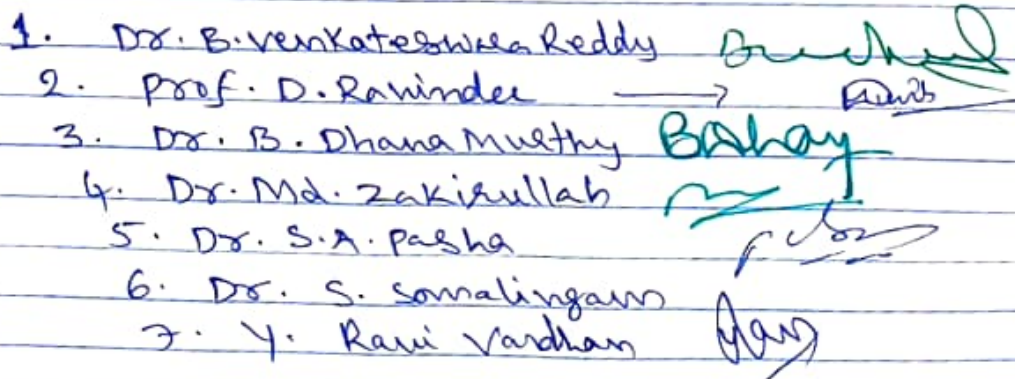 1. Dr. B. Venkateswara Reddy
2. Prof. D. Ravinder →
3. Dr. B. Dhana Murthy
4. Dr. Md. Zakirullah
5. Dr. S.A. Pasha
6. Dr. S. Somalingam
7. Y. Ravi Vardhan